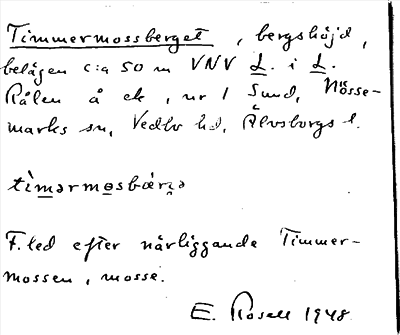 Timmermossberget, bergshöjd,
belägen c:a 50 m VNV L. i L.
Rålen å ek, nr 1 Sund, Nösse-
marks sn, Vedbo hd, Älvsborgs l.
F.led efter närliggande Timmer-
mossen, mosse.
E. Rosell 1948